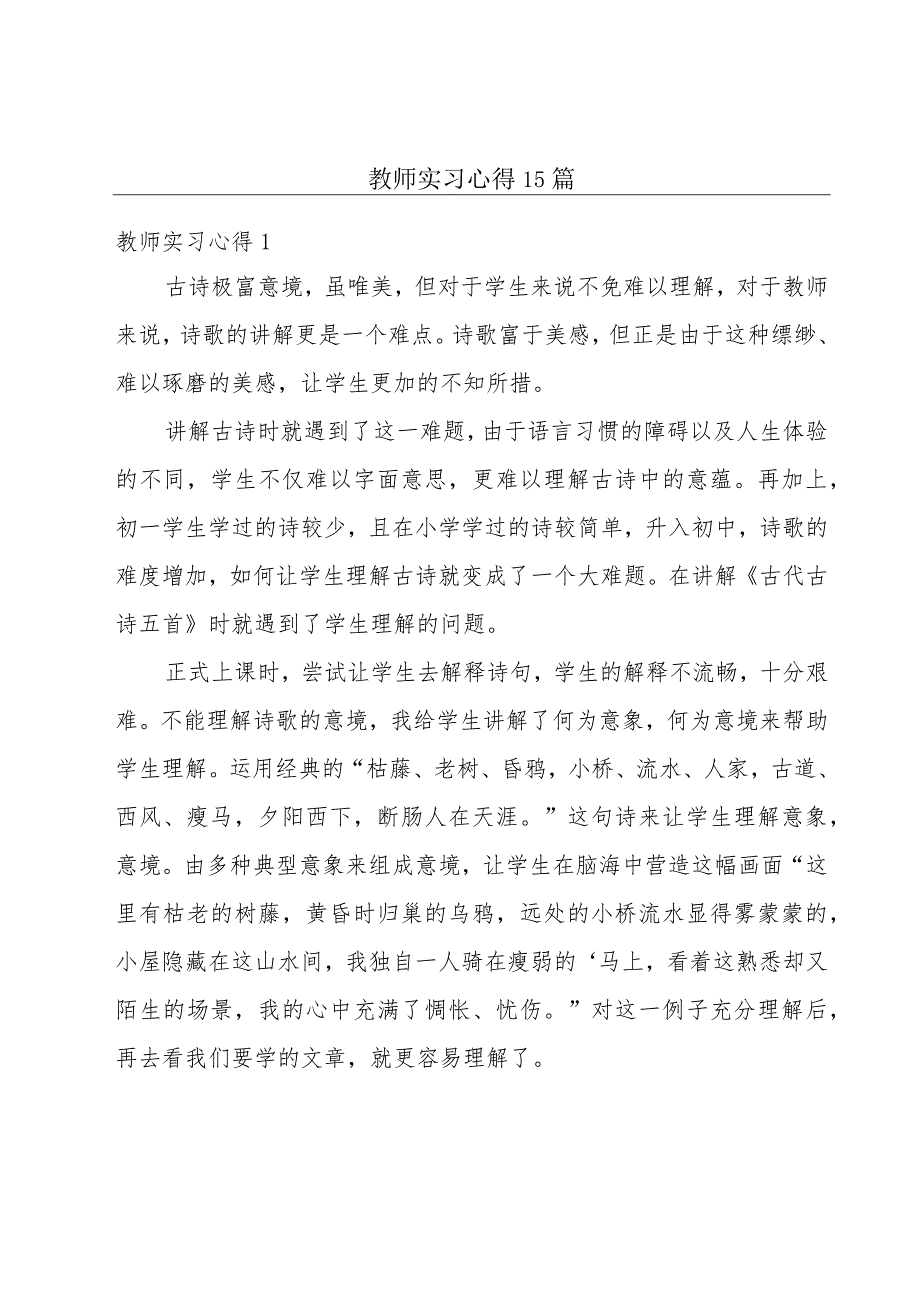 教师实习心得15篇
教师实习心得1
古诗极富意境，虽唯美，但对于学生来说不免难以理解，对于教师
来说，诗歌的讲解更是一个难点。诗歌富于美感，但正是由于这种缥缈、
难以琢磨的美感，让学生更加的不知所措。
讲解古诗时就遇到了这一难题，由于语言习惯的障碍以及人生体验
的不同，学生不仅难以字面意思，更难以理解古诗中的意蕴。再加上，
初一学生学过的诗较少，且在小学学过的诗较简单，升入初中，诗歌的
难度增加，如何让学生理解古诗就变成了一个大难题。在讲解《古代古
诗五首》时就遇到了学生理解的问题。
正式上课时，尝试让学生去解释诗句，学生的解释不流畅，十分艰
难。不能理解诗歌的意境，我给学生讲解了何为意象，何为意境来帮助
学生理解。运用经典的“枯藤、老树、昏鸦，小桥、流水、人家，古道、
西风、瘦马，夕阳西下，断肠人在天涯。”这句诗来让学生理解意象，
意境。由多种典型意象来组成意境，让学生在脑海中营造这幅画面“这
里有枯老的树藤，黄昏时归巢的乌鸦，远处的小桥流水显得雾蒙蒙的，
小屋隐藏在这山水间，我独自一人骑在瘦弱的‘马上，看着这熟悉却又
陌生的场景，我的心中充满了惆怅、忧伤。”对这一例子充分理解后，
再去看我们要学的文章，就更容易理解了。